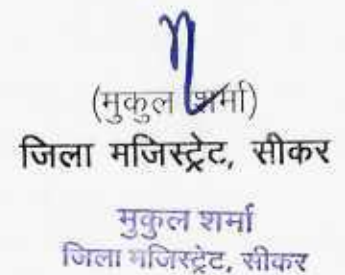 (मुकुल शर्मा)
जिला मजिस्ट्रेट, सीकर
मुकुल शर्मा
जिला मजिस्ट्रेट, सीकर